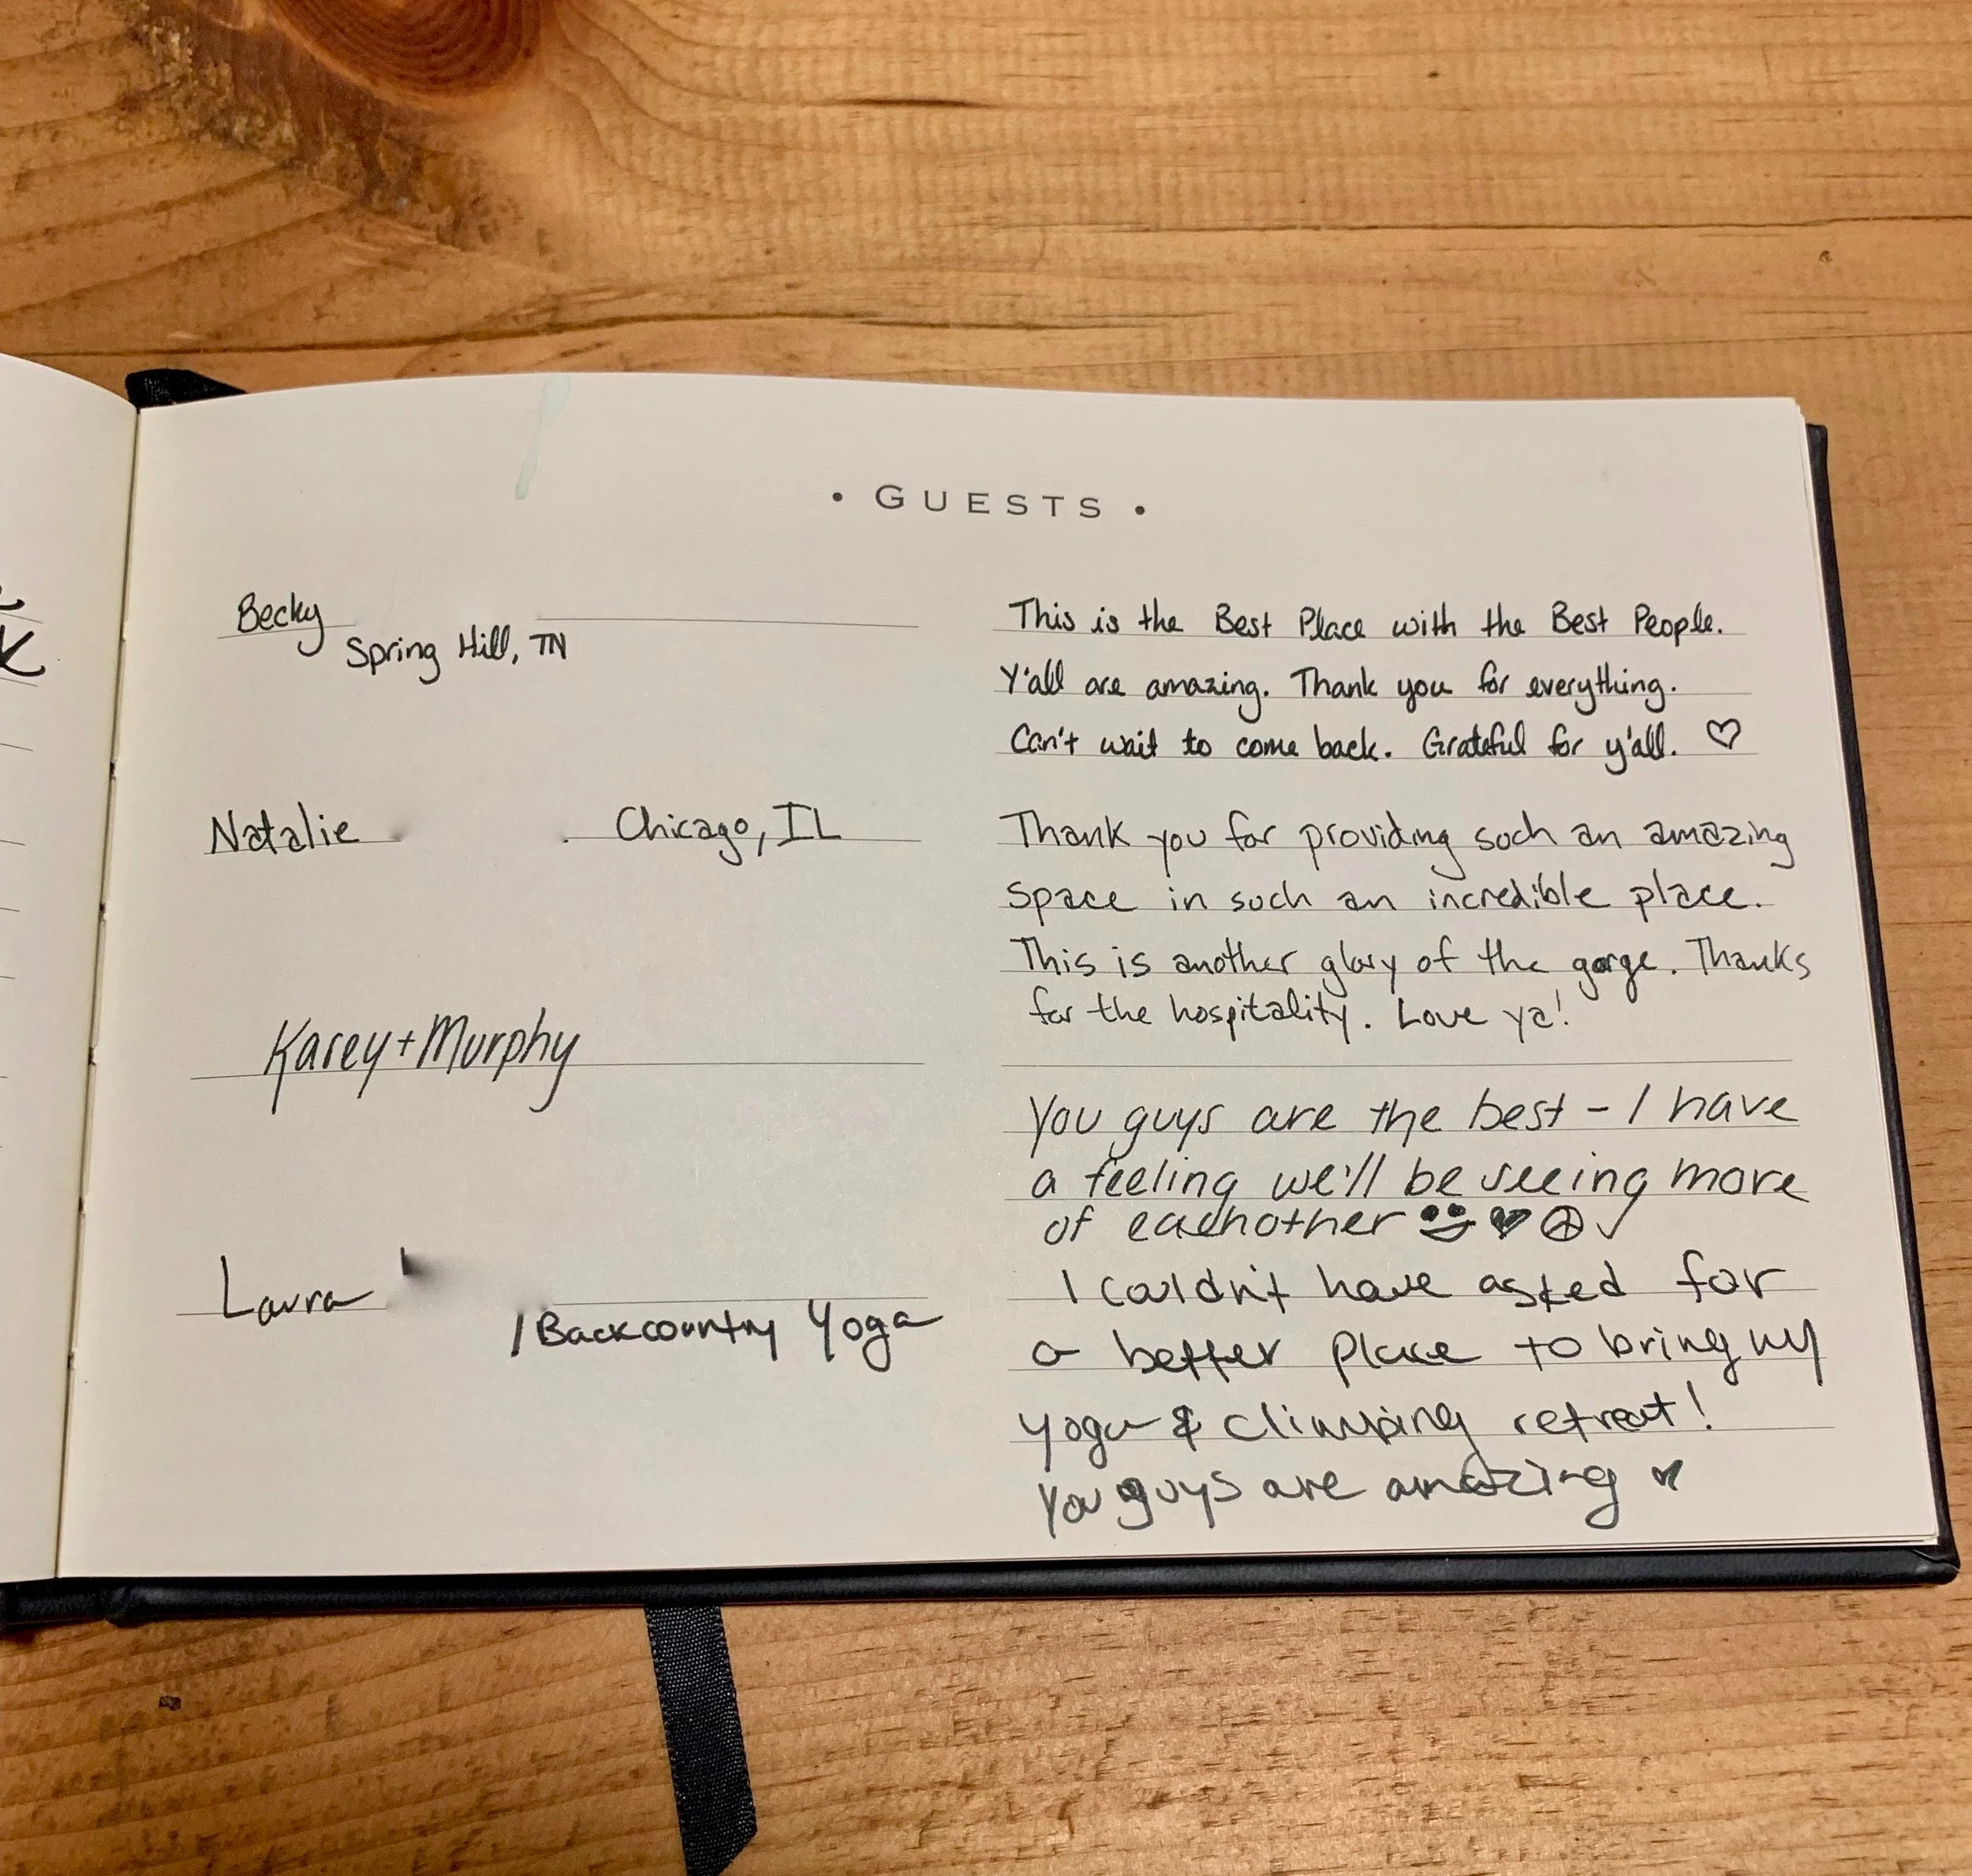 • GUESTS •
Becky
Spring Hill, TN
This is the Best Place with the Best People.
Y'all are amazing. Thank you for everything.
Can't wait to come back. Grateful for y'all. ♡
Natalie Chicago, IL
Thank you for providing such an amazing
space in such an incredible place.
This is another glory of the gorge. Thanks
for the hospitality. Love ya!
Karey + Murphy
You guys are the best - I have
a feeling we'll be seeing more
of eachother
Laura
/Backcountry Yoga
I couldn't have asked for
a better place to bring my
yoga & climbing retreat!
You guys are amazing ♥